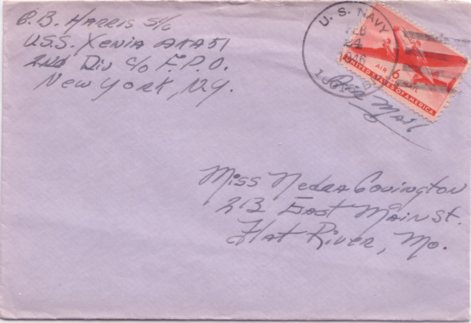 C. B. Harris S/c
U.S.S. Xenia AKA 51
2nd Div c/o F.P.O.
New York, N.Y.
U. S. NAVY
FEB
24
1946
6¢
AIR MAIL
UNITED STATES OF AMERICA
Air Mail
Miss Nedra Covington
213 East Main St.
Flat River, Mo.